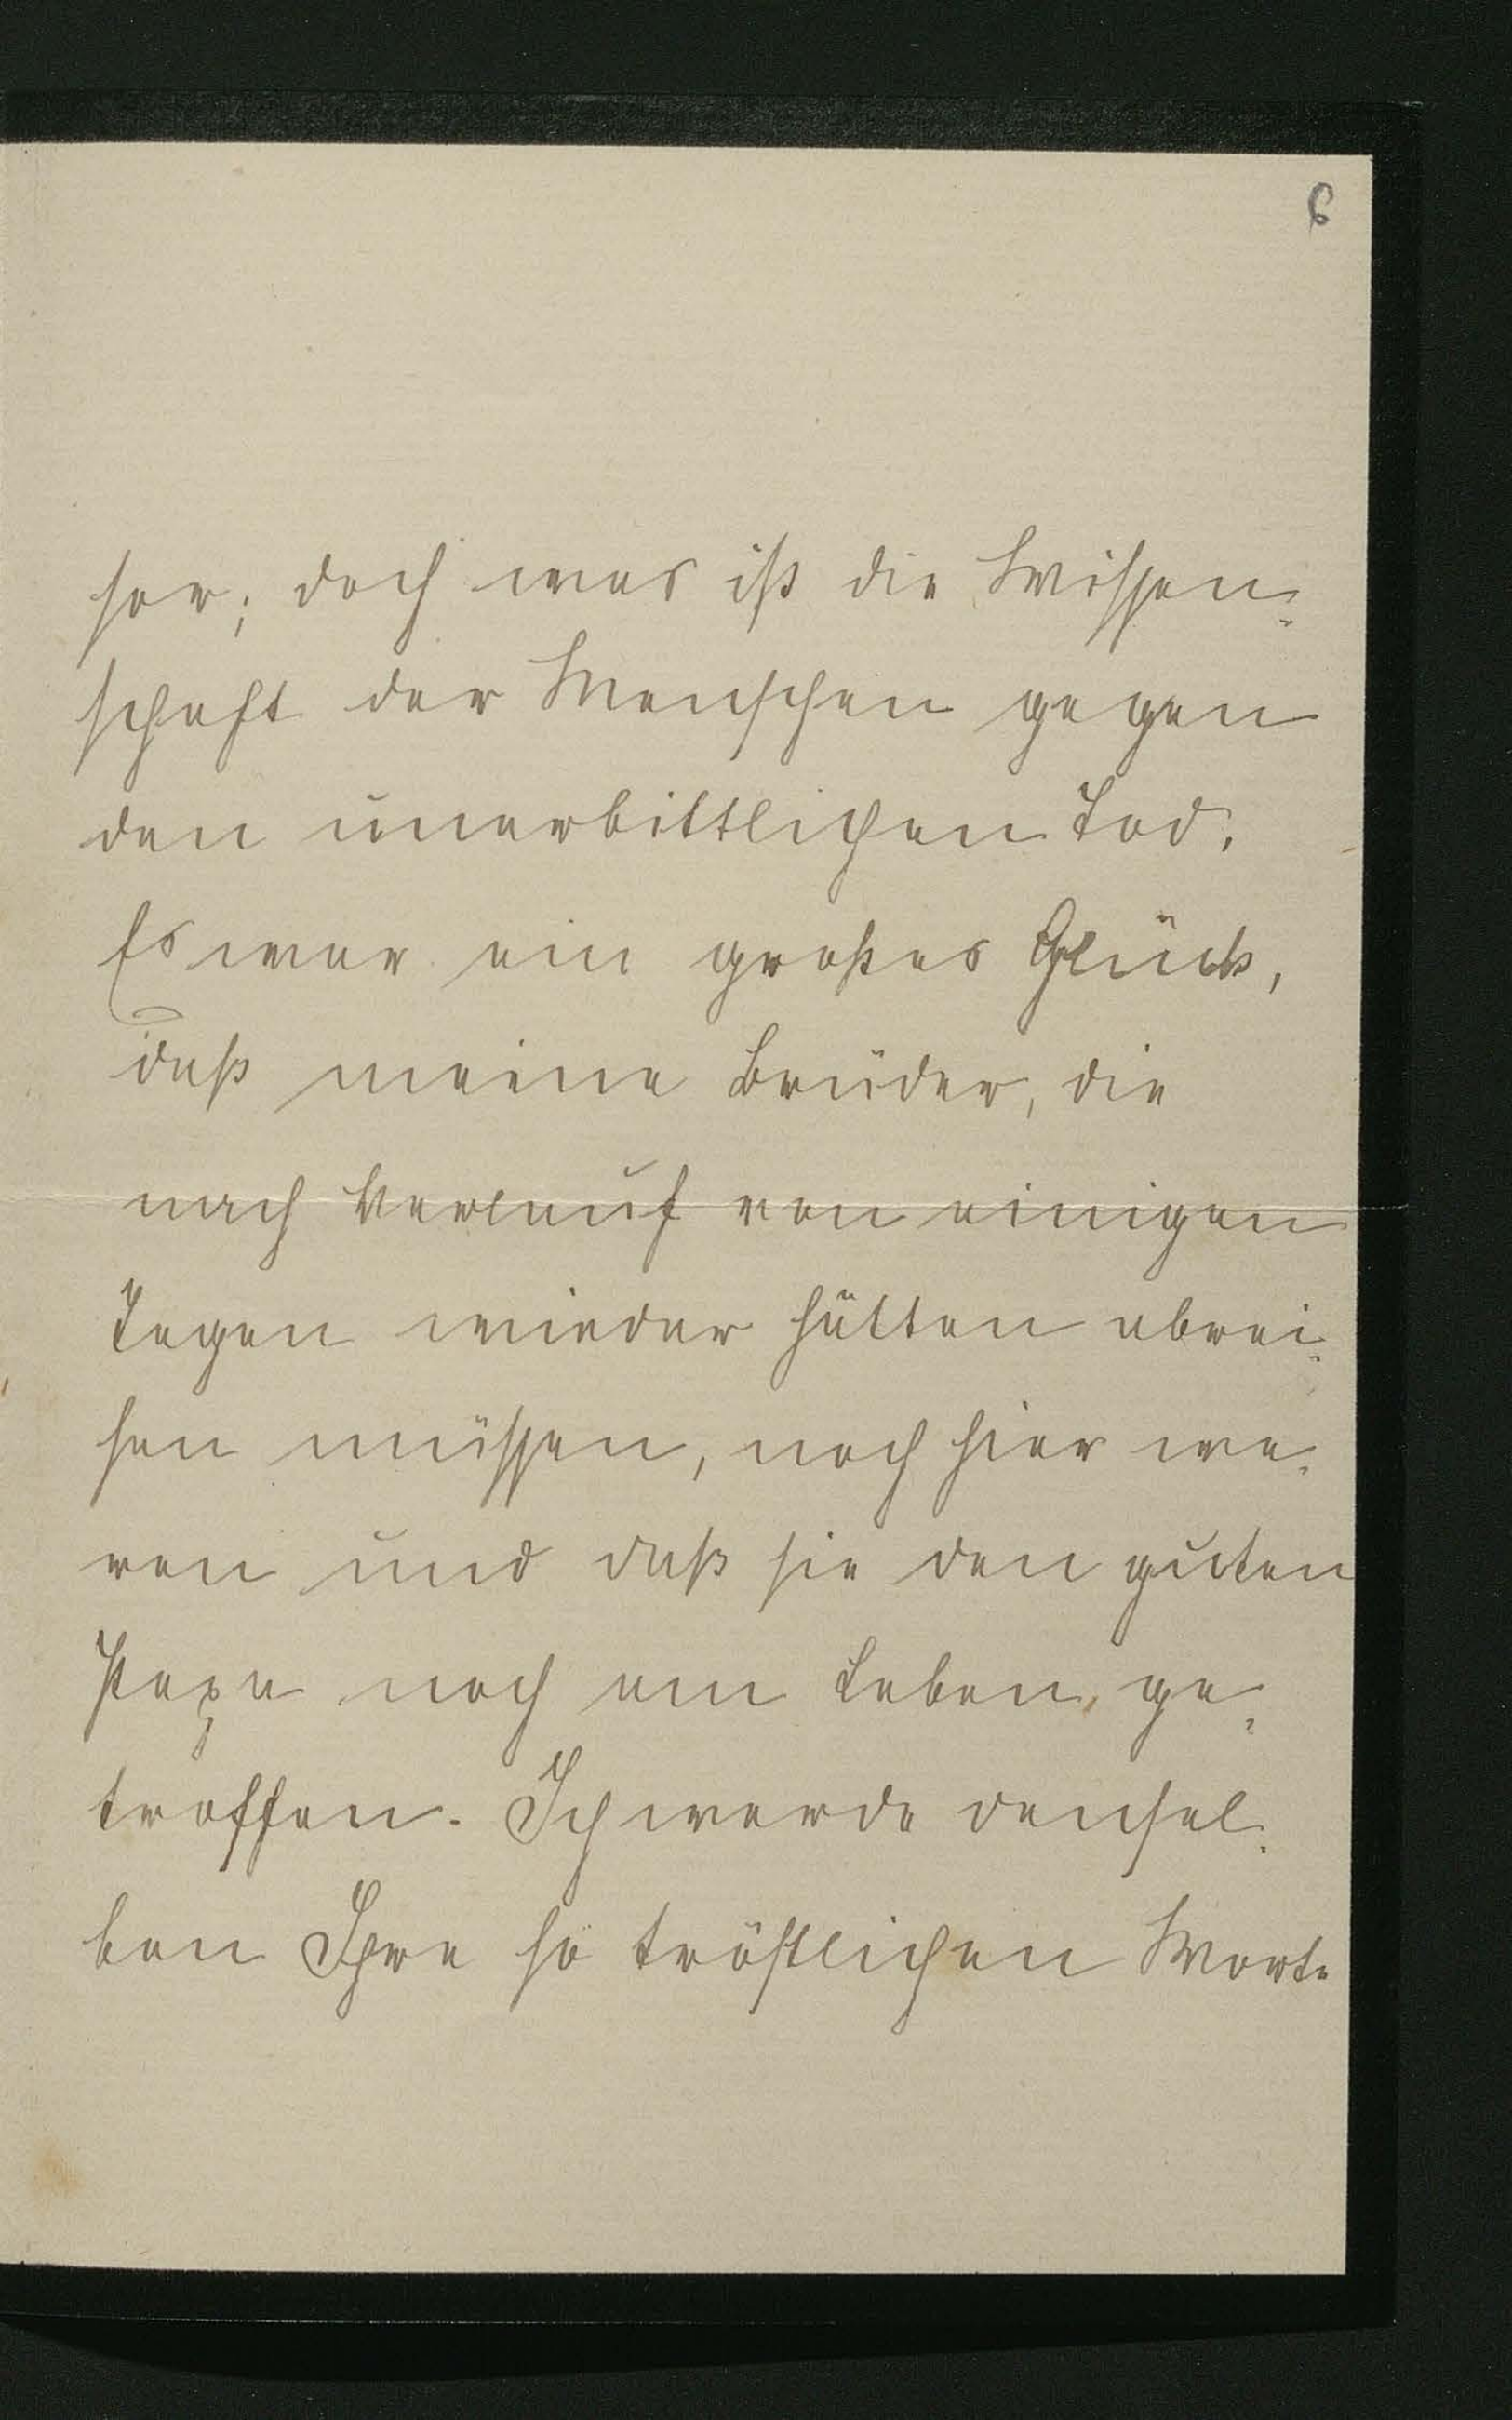 6
sor; doch was ist die Wissen-
schaft der Menschen gegen
den unerbittlichen Tod.
Es war ein großes Glück,
daß meine Brüder, die
nach Verlauf von einigen
Tagen wieder hätten abrei-
sen müssen, noch hier wa-
ren und daß sie den guten
Papa noch am Leben, ge-
troffen. Ich werde densel-
ben Ihre so tröstlichen Worte